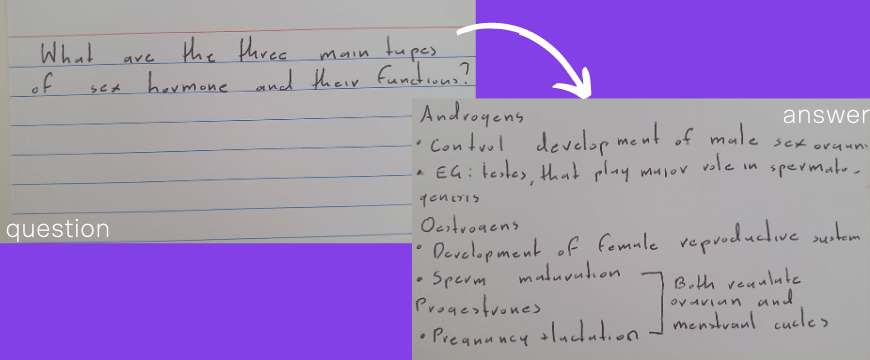 What are the three main types
of sex hormone and their functions?
question
answer
Androgens
• Control development of male sex organs
• EG: testes, that play major role in spermato-
genesis
Oestrogens
• Development of female reproductive system
• Sperm maturation
Progestrones
• Pregnancy + lactation
Both regulate
ovarian and
menstrual cycles